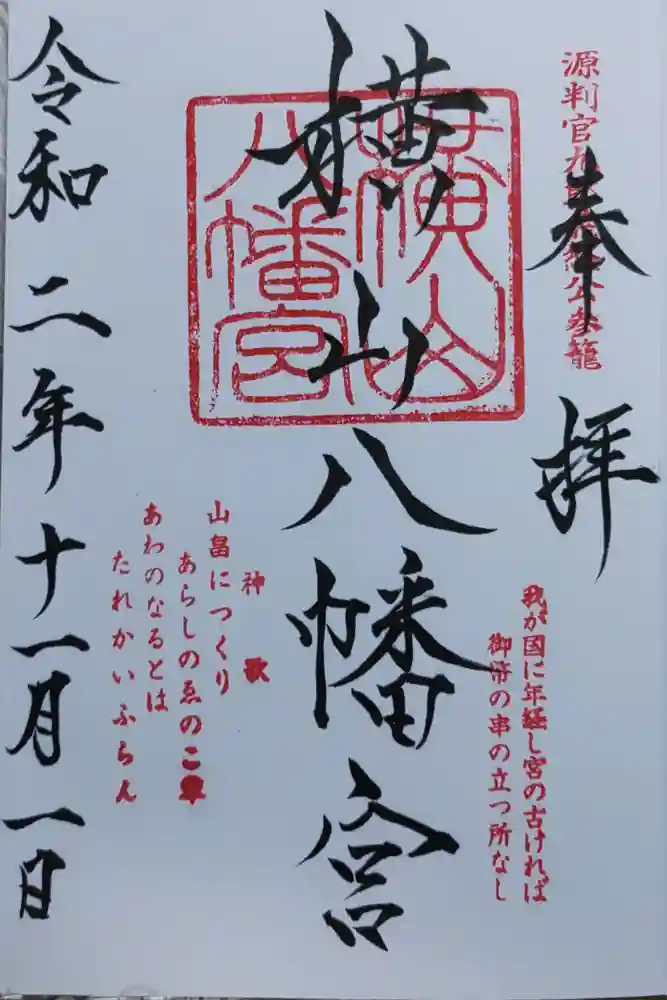 源判官九郎義経公参籠
奉拝
我が国に年経し宮の古ければ
御幣の串の立つ所なし
横山八幡宮
横山
八幡宮
神歌
山畠につくり
あらしのゑのこ
あわのなるとは
たれかいふらん
令和二年十一月一日